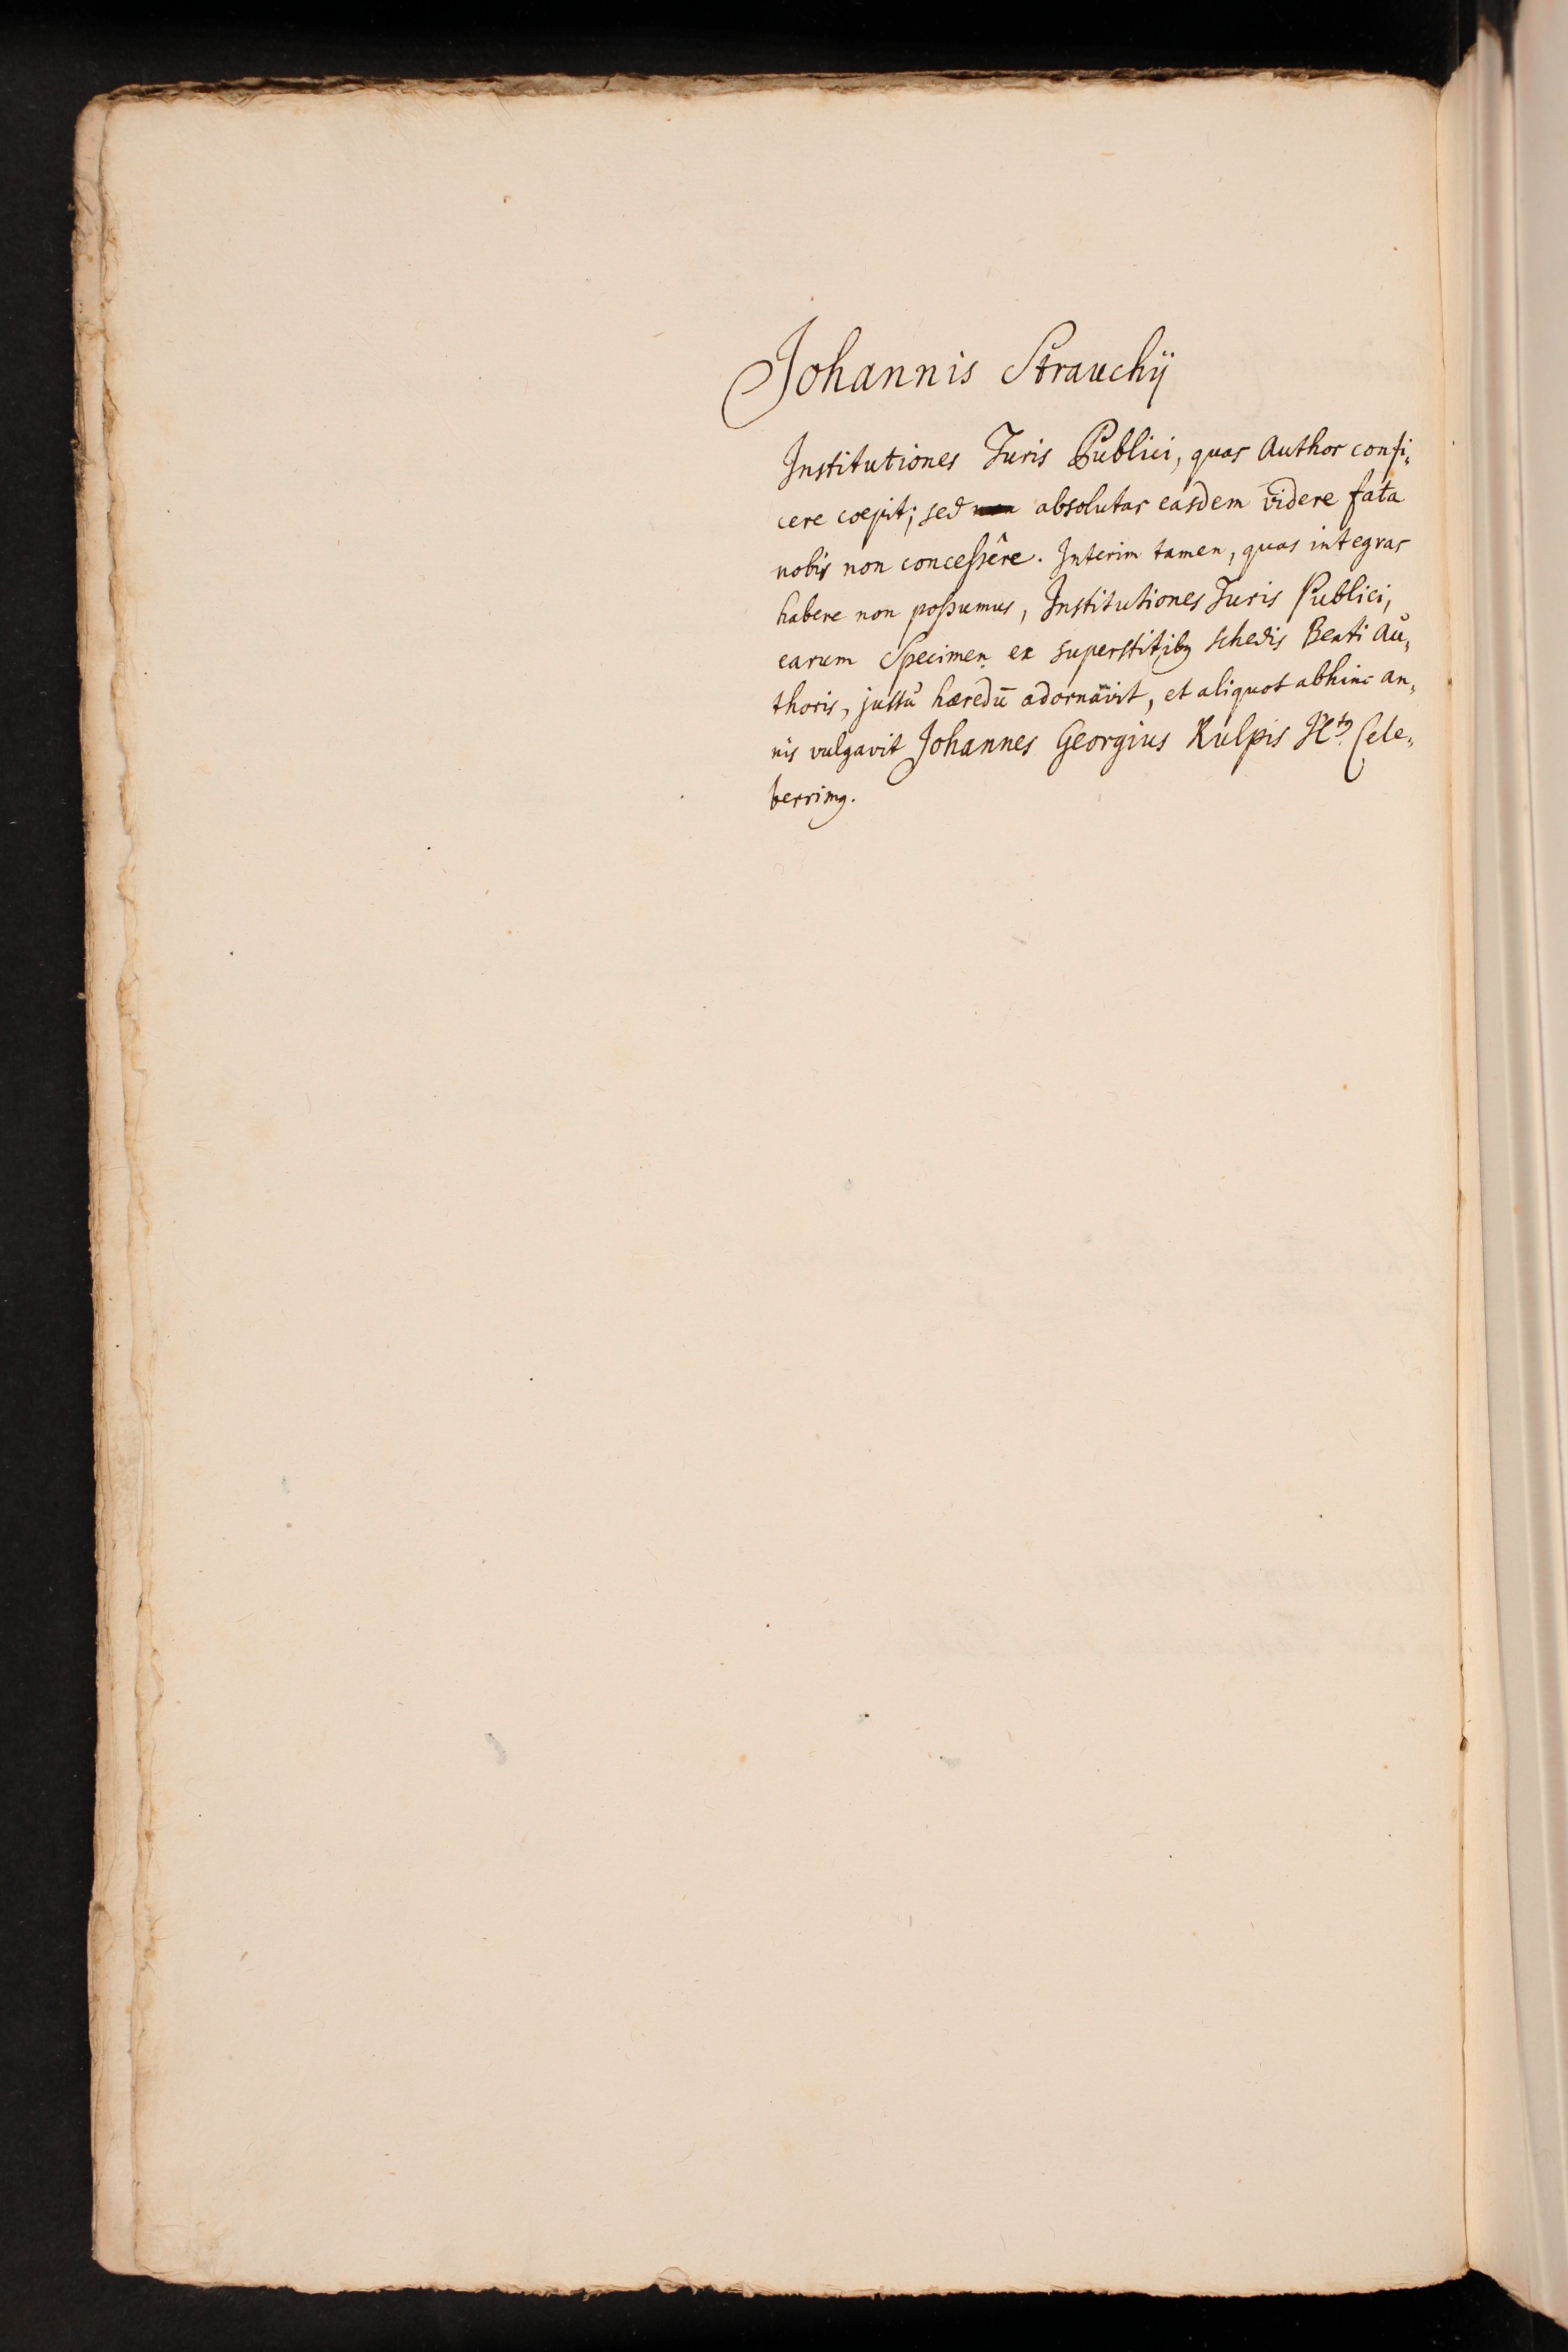 Johannis Strauchij
Institutiones Juris Publici, quas Author confi„
cere coepit; sed absolutas easdem videre fata
nobis non conceßêre. Interim tamen, quas integras
habere non poßumus, Institutiones Juris Publici,
earum Specimen ex superstitibꝫ schedis Beati Au„
thoris, jussu hæredū adornavit, et aliquot abhinc an„
nis vulgavit Johannes Georgius Kulpis Cele„
berrimꝰ.